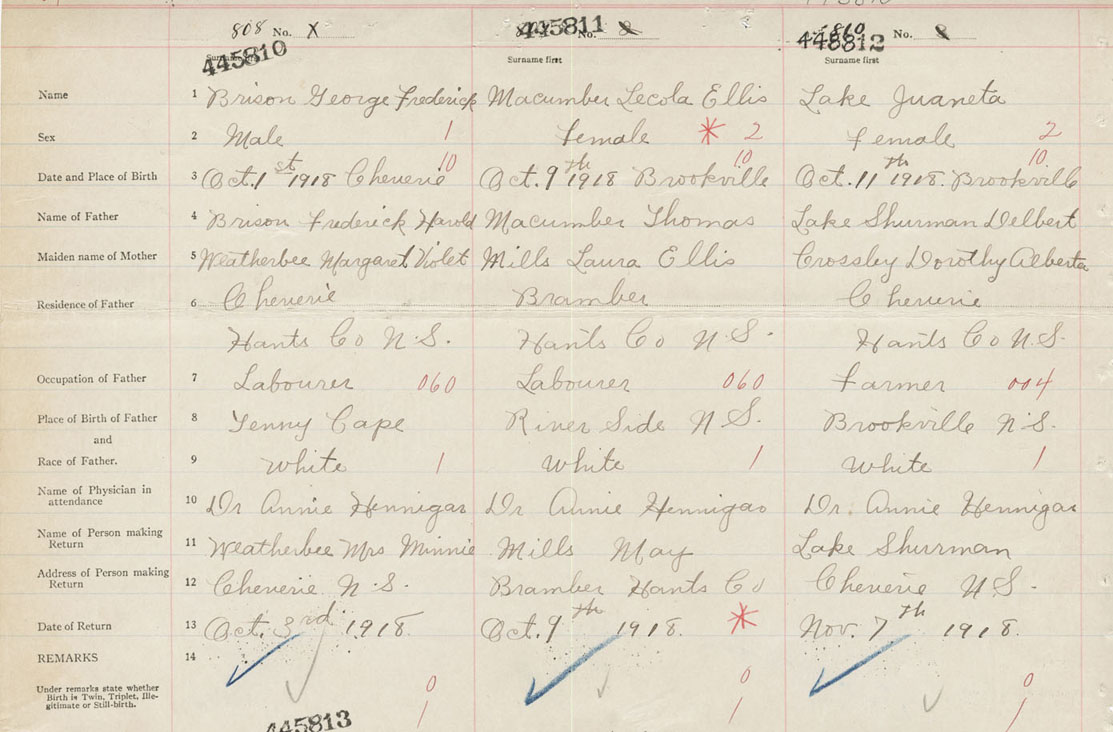 808 No. X 445811 No. 8 1860 No. 8
445810 448812
Surname first Surname first
Name 1 Brison George Frederick Macumber Lecola Ellis Lake Juaneta
Sex 2 Male 1 Female * 2 Female 2
10 10 10
Date and Place of Birth 3 Oct. 1st 1918 Cheverie Oct. 9th 1918 Brookville Oct. 11th 1918. Brookville
Name of Father 4 Brison Frederick Harold Macumber Thomas Lake Shurman Delbert
Maiden name of Mother 5 Weatherbee Margaret Violet Mills Laura Ellis Crossley Dorothy Alberta
Residence of Father 6 Cheverie Bramber Cheverie
Hants Co N.S. Hants Co N.S. Hants Co N.S.
Occupation of Father 7 Labourer 060 Labourer 060 Farmer 004
Place of Birth of Father 8 Tenny Cape River Side N.S. Brookville N.S.
and
Race of Father. 9 White 1 White 1 White 1
Name of Physician in
attendance 10 Dr Annie Hennigar Dr Annie Hennigar Dr. Annie Hennigar
Name of Person making
Return 11 Weatherbee Mrs Minnie Mills May Lake Shurman
Address of Person making
Return 12 Cheverie N.S. Bramber Hants Co Cheverie N.S.
Date of Return 13 Oct. 3rd 1918 Oct. 9th 1918. * Nov. 7th 1918.
REMARKS 14
Under remarks state whether
Birth is Twin, Triplet, Ille-
gitimate or Still-birth.
0 0 0
1 1 1
445813